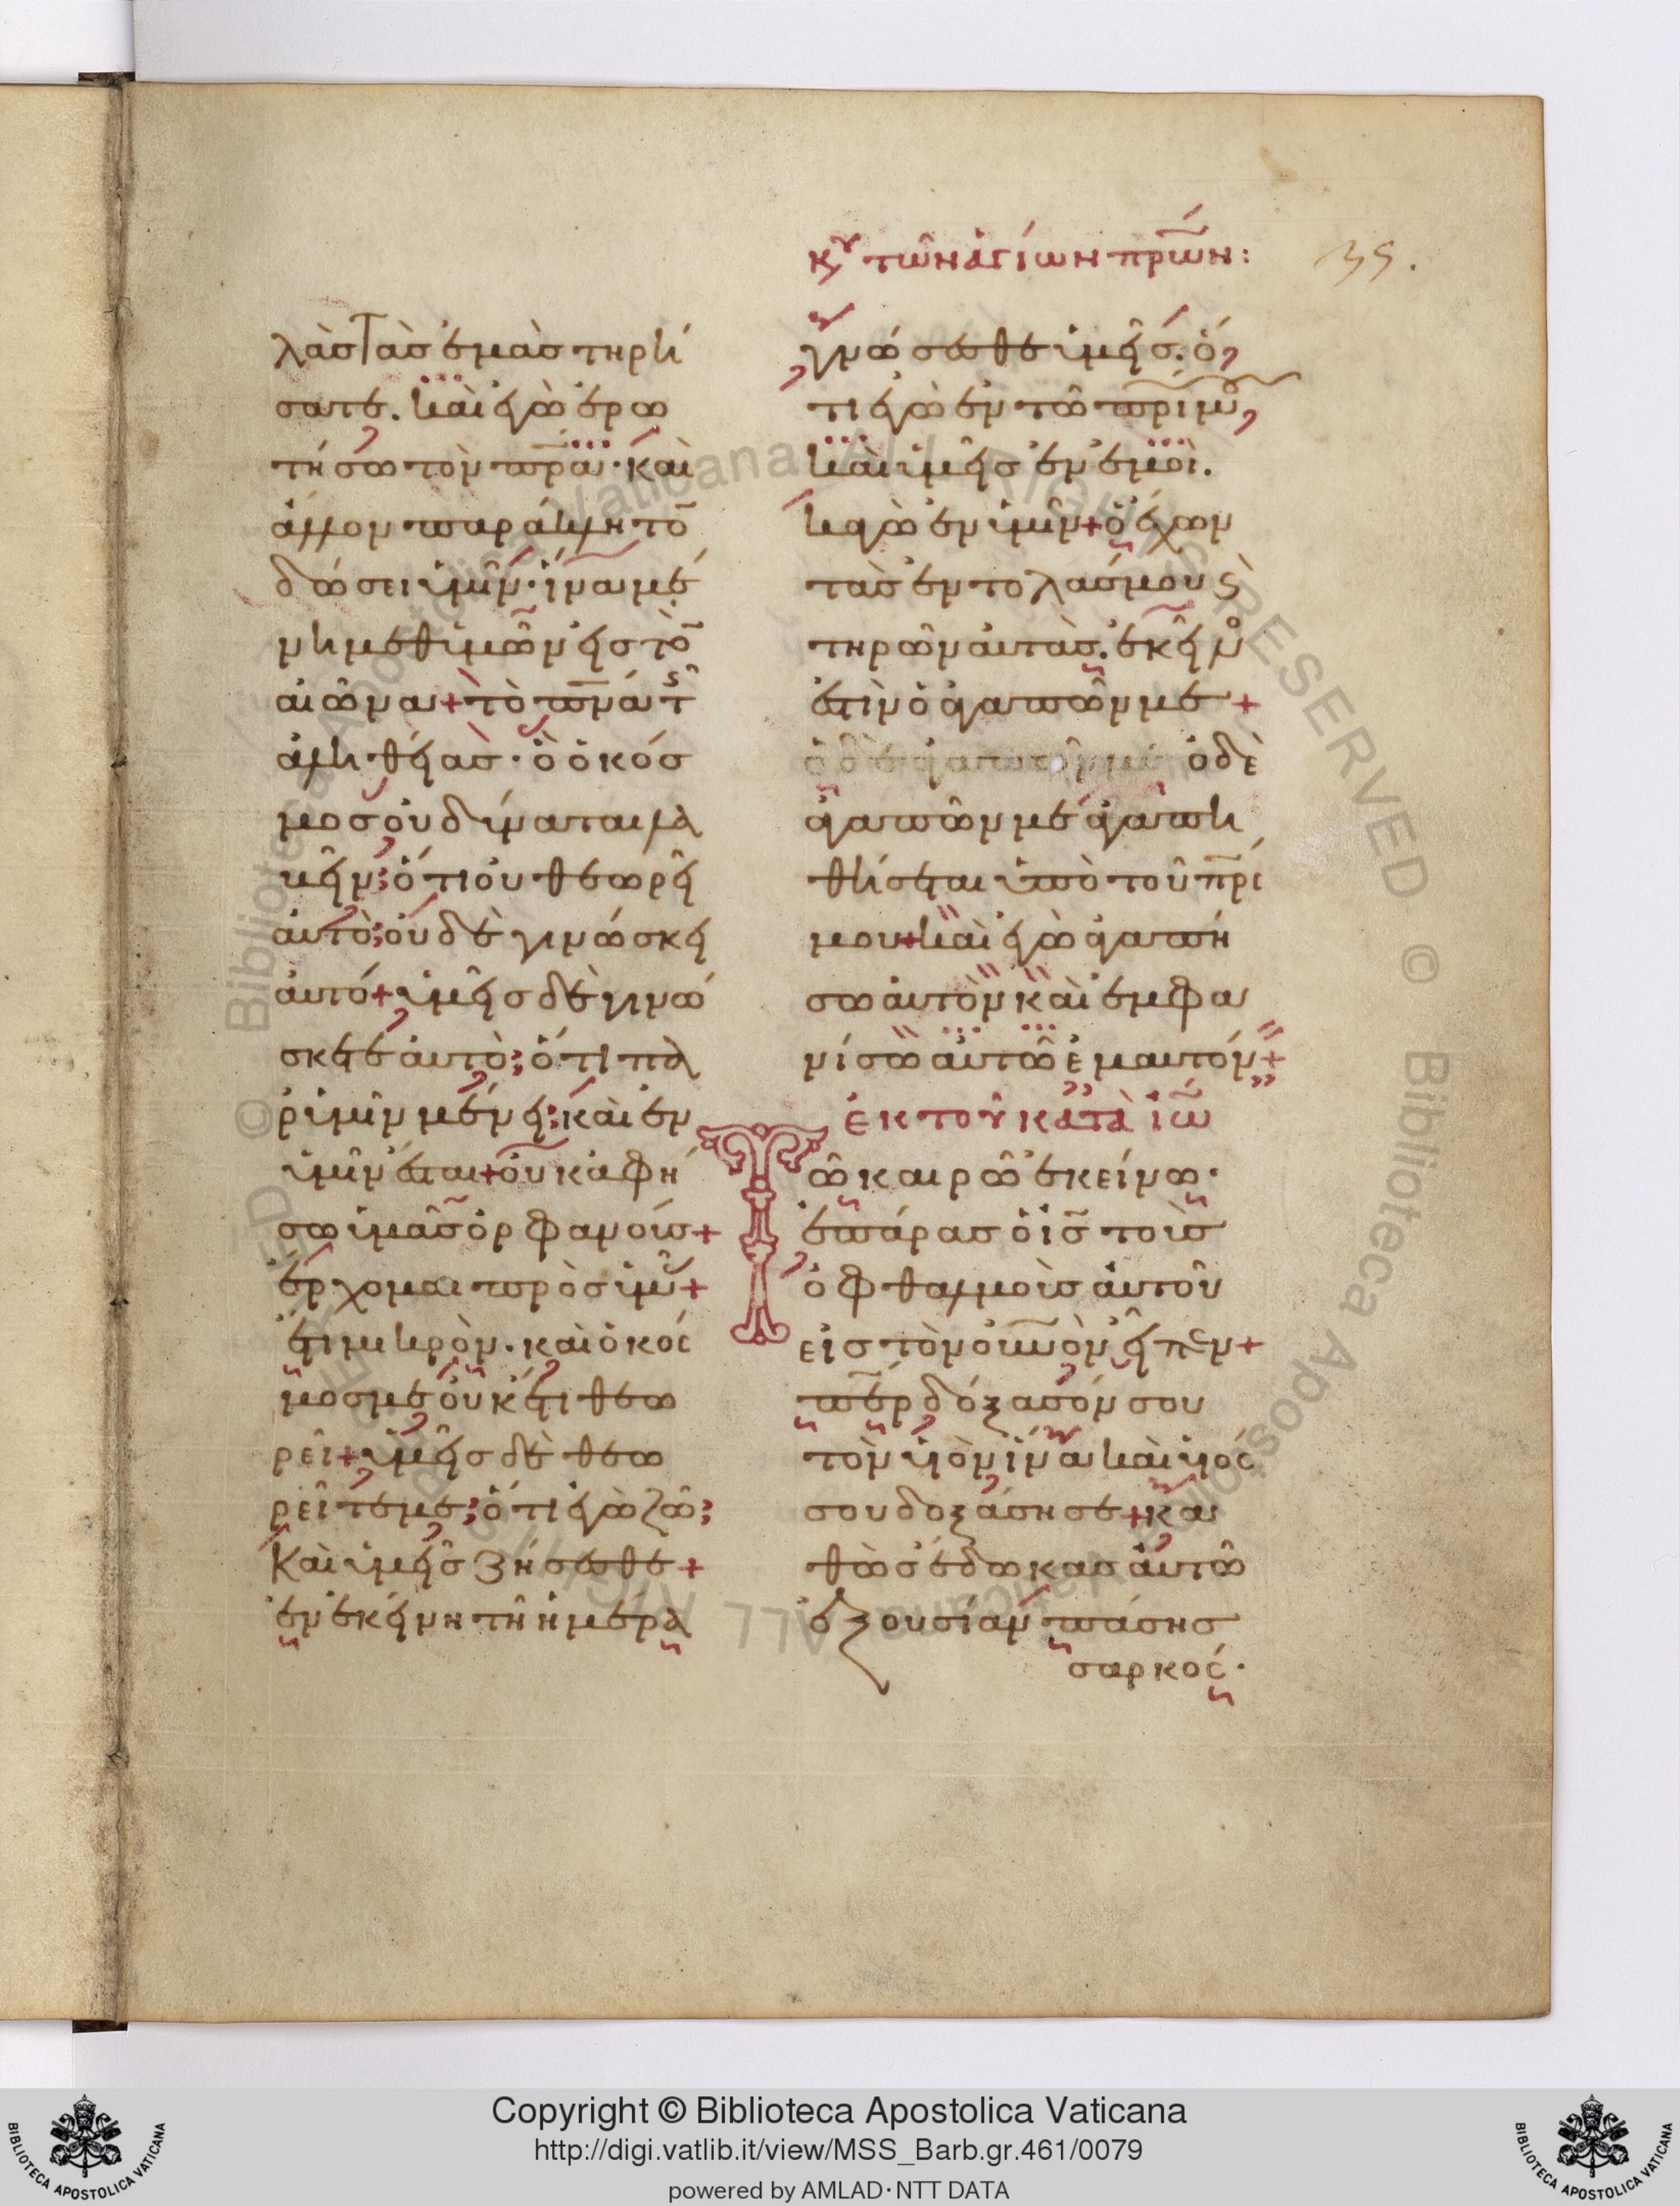 κυ τῶν ἁγίων πρ̅ων:
35.
λὰσ τὰσ ἐμὰσ τηρή
σατε. καὶ ἐγὼ ἐρω
τήσω τὸν πρ̅α. καὶ
ἄλλον παράκλητο̅
δώσει ὑμῖν. ἵνα μέ
νη μεθ ὑμῶν εἰς τὸ̅
αἰῶνα + τὸ πν̅α τ῀
ἀληθείασ. ὃ ὁ κόσ
μοσ οὐ δύναται λα
βεῖν; ὅτι οὐ θεωρεῖ
ἀυτὸ; οὐδὲ γινώσκει
ἀυτό + ὑμεῖσ δὲ γινώ
σκετε ἀυτὸ; ὅτι πα
ρ ὑμῖν μένει; καὶ ἐν
ὑμῖν ἔσται + οὐκ ἀφή
σω ὑμᾶσ ὀρφανούσ +
ἔρχομαι πρὸσ ὑμ῀ +
ἔτι μικρὸν. καὶ ὁ κόσ
μοσ με οὐκέτι θεω
ρεῖ + ὑμεῖσ δὲ θεω
ρεῖτε με; ὅτι ἐγὼ ζῶ;
καὶ ὑμεῖσ ζήσεσθε +
ἐν ἐκείνη τῆ ἡμέρα
γνώσεσθε ὑμεῖσ. ὅ,
τι ἐγὼ ἐν τῶ πρ̅ι μ῀,
καὶ ὑμεῖσ ἐν ἐμοὶ.
κἀγὼ ἐν ὑμῖν + ὁ ἔχων
τὰσ ἐντολάσ μου ϛ
τηρῶν ἀυτὰσ. ἐκεῖνο
ἐστὶν ὁ ἀγαπῶν με +
ὁ δὲ
ἀγαπῶν με ἀγαπη
θήσεται ὑπὸ τοῦ πρ̅ι
μου + καὶ ἐγὼ ἀγαπή
σω ἀυτὸν καὶ ἐμφα
νίσω ἀυτῶ ἐμαυτόν +
ἐκ τοῦ κατὰ ἰω̅
Τῶ καιρῶ ἐκείνω.
ἐπάρασ ὁ ἰσ̅ τοὺσ
ὀφθαλμοὺσ ἀυτοῦ
εἰσ τὸν οὐνὸν εἶπεν +
πε̅ρ δόξασόν σου
τὸν υἱὸν ἵνα καὶ υἱός
σου δοξάση σε + κα
θὼσ ἔδωκασ ἀυτῶ
ἐξουσίαν πάσησ
σαρκός.
Copyright © Biblioteca Apostolica Vaticana
http://digi.vatlib.it/view/MSS_Barb.gr.461/0079
powered by AMLAD·NTT DATA